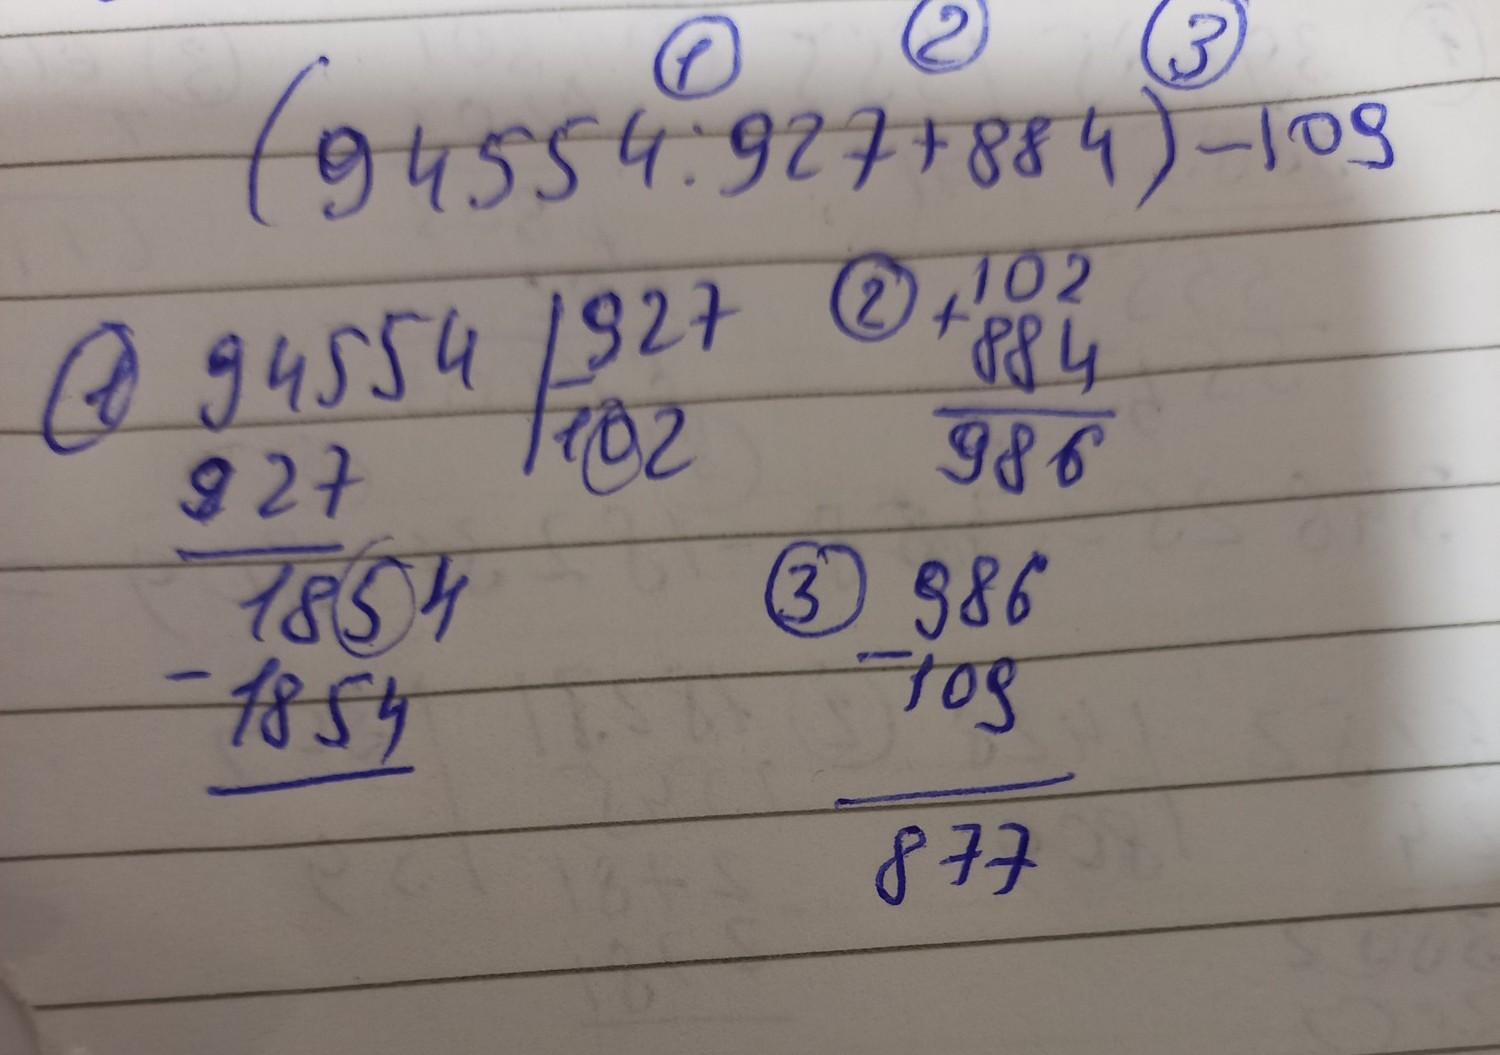 ① ② ③
(94554:927+884)-109
① 94554 927
102
927
1854
- 1854
② + 102
884
986
③ 986
- 109
877